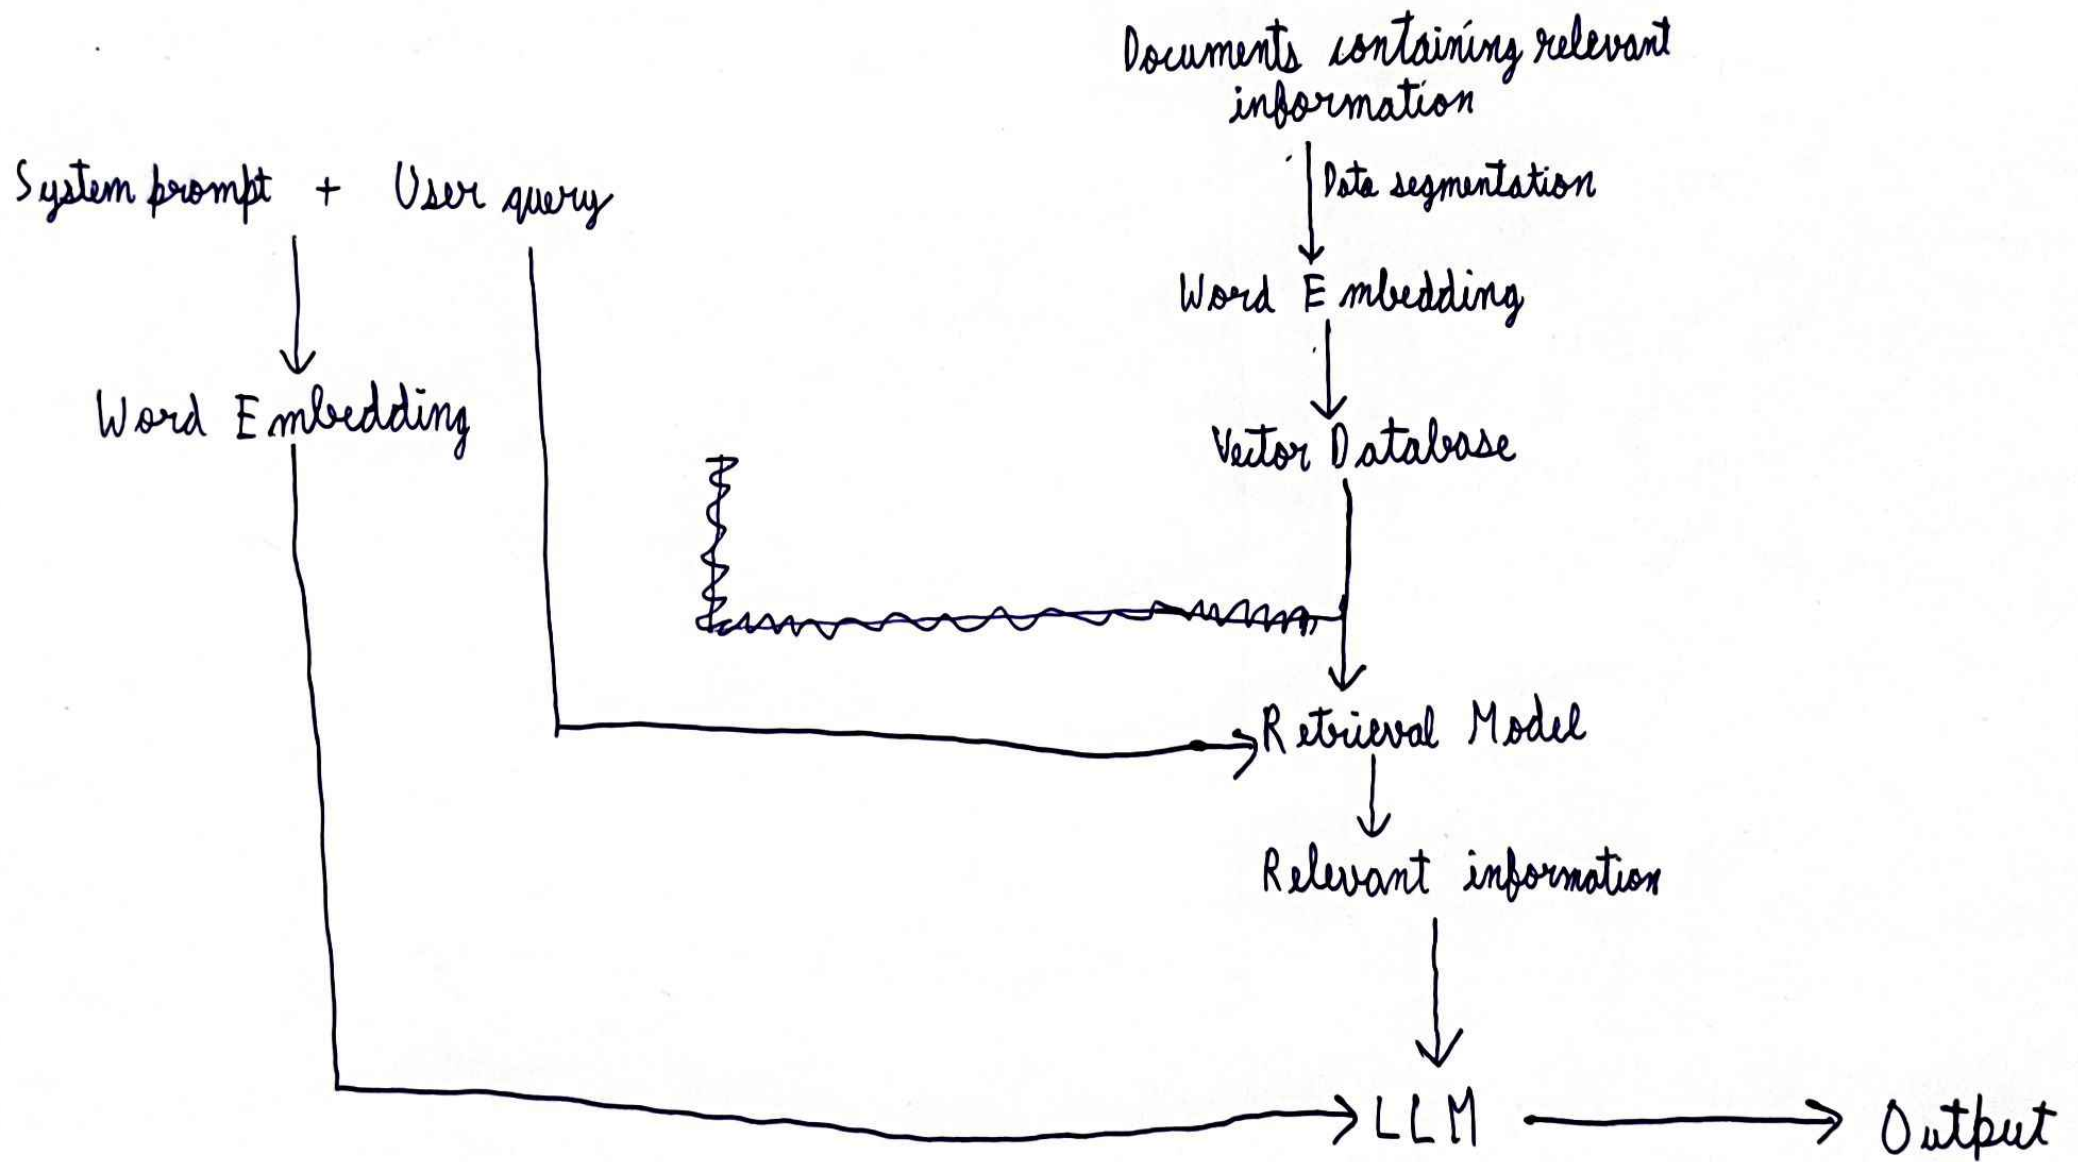 Documents containing relevant
information
System prompt + User query
Data segmentation
Word Embedding
Word Embedding
Vector Database
Retrieval Model
Relevant information
LLM
Output